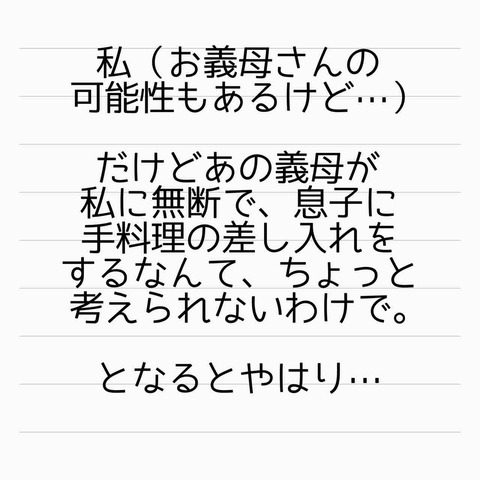 私（お義母さんの
可能性もあるけど…）
だけどあの義母が
私に無断で、息子に
手料理の差し入れを
するなんて、ちょっと
考えられないわけで。
となるとやはり…